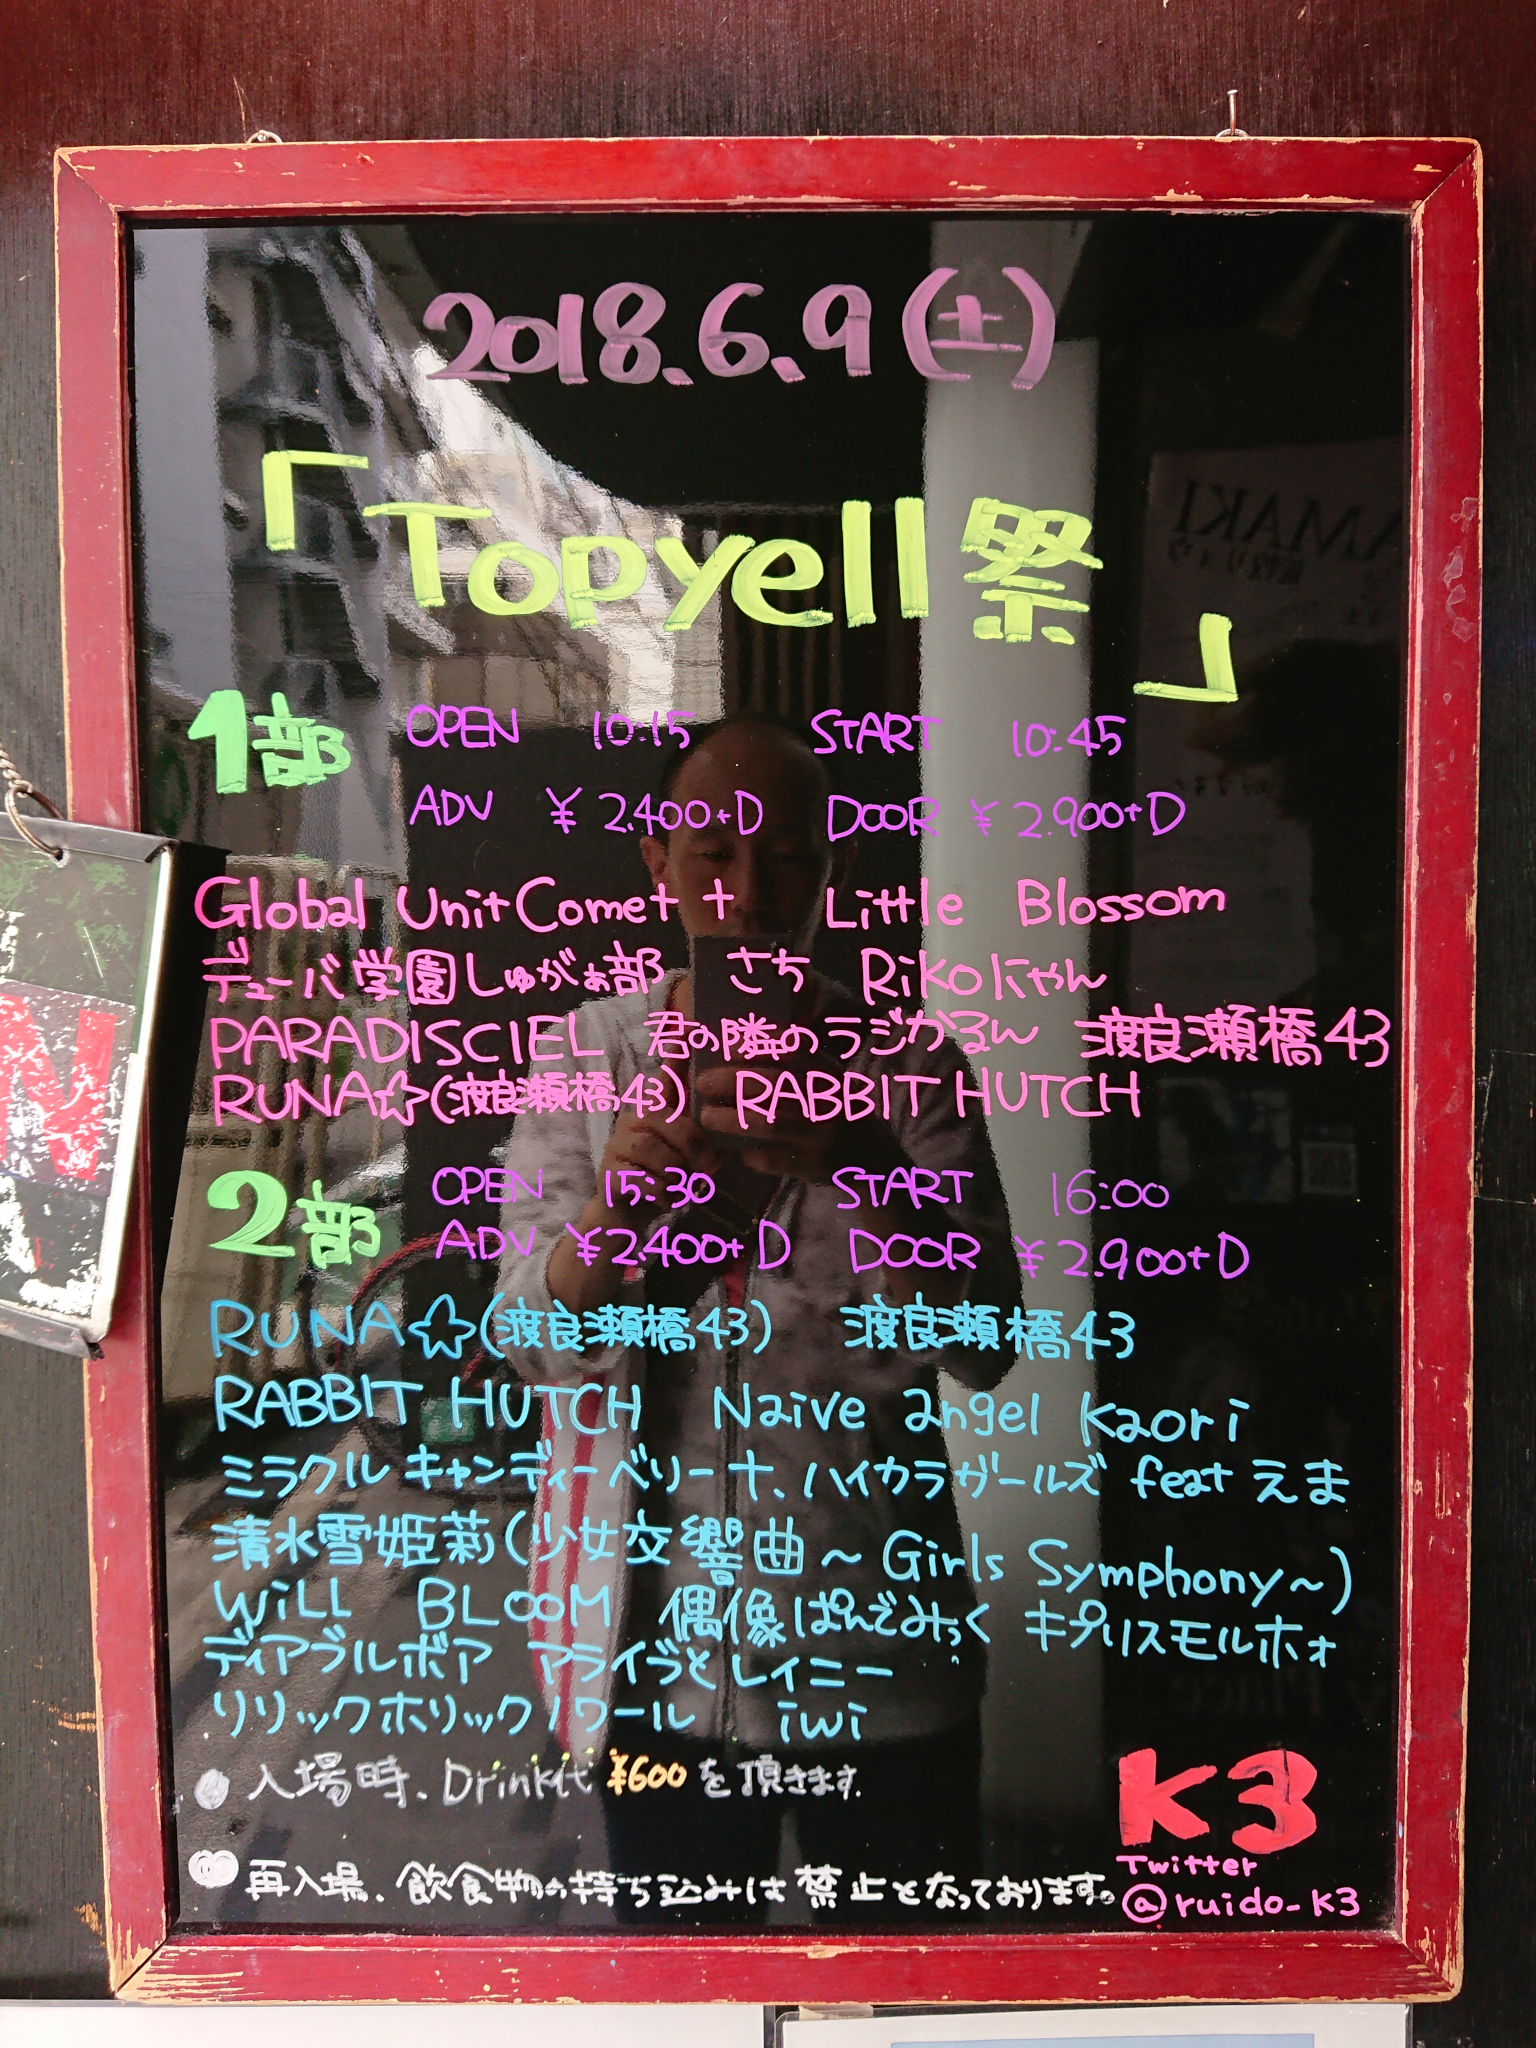 2018.6.9(土)
「Topyell祭」
1部 OPEN 10:15 START 10:45
ADV ¥2.400+D DOOR ¥2.900+D
Global Unit Comet + Little Blossom
デューバ学園しゅがぁ部 さち Rikoにゃん
PARADISCIEL 君の隣のラジかるん 渡良瀬橋43
RUNA☆(渡良瀬橋43) RABBIT HUTCH
2部 OPEN 15:30 START 16:00
ADV ¥2.400+D DOOR ¥2.900+D
RUNA☆(渡良瀬橋43) 渡良瀬橋43
RABBIT HUTCH Naive angel Kaori
ミラクルキャンディーベリーナ、ハイカラガールズ feat えま
清水雪姫莉(少女交響曲~Girls Symphony~)
WiLL BLOOM 偶像ぱんでみっく キプリスモルホォ
ディアブルボア アライヴとレイニー
リリックホリックノワール iwi
●入場時、Drink代 ¥600 を頂きます。
再入場、飲食物の持ち込みは禁止となっております。
K3
Twitter
@ruido_K3
AMAKI